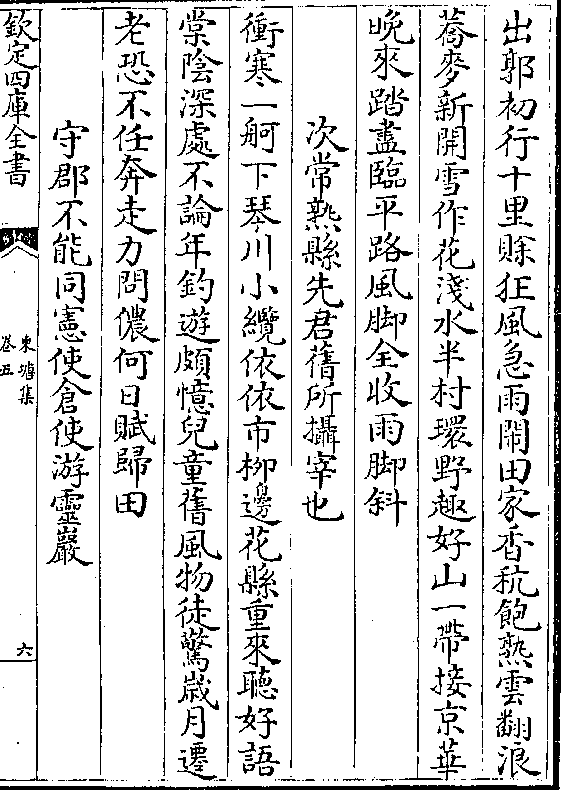 出郭初行十里賖狂風急雨閙田家香秔飽熟雲翻浪
蕎麥新開雪作花淺水半村環野趣好山一帶接京華
晩來踏盡臨平路風脚全收雨脚斜
次常熟縣先君舊所攝宰也
衝寒一舸下琴川小纜依依市柳邊花縣重來聽好語
棠陰深處不論年釣遊頗憶兒童舊風物徒驚歳月遷
老恐不任奔走力問儂何日賦歸田
守郡不能同憲使倉使游靈巖
欽定四庫全書
東塘集
卷五
六